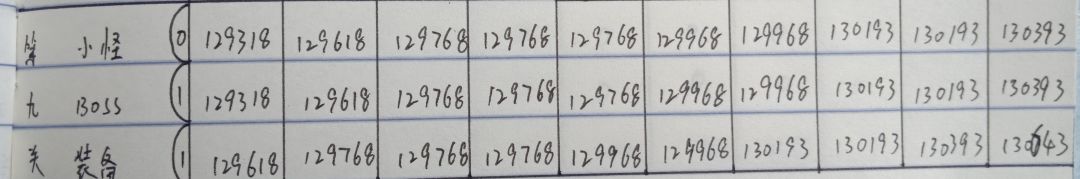 第 小怪 0 129318 129618 129768 129768 129768 129968 129968 130193 130193 130393
九 BOSS 1 129318 129618 129768 129768 129768 129968 129968 130193 130193 130393
关 装备 1 129618 129768 129768 129768 129968 129968 130193 130193 130393 130643